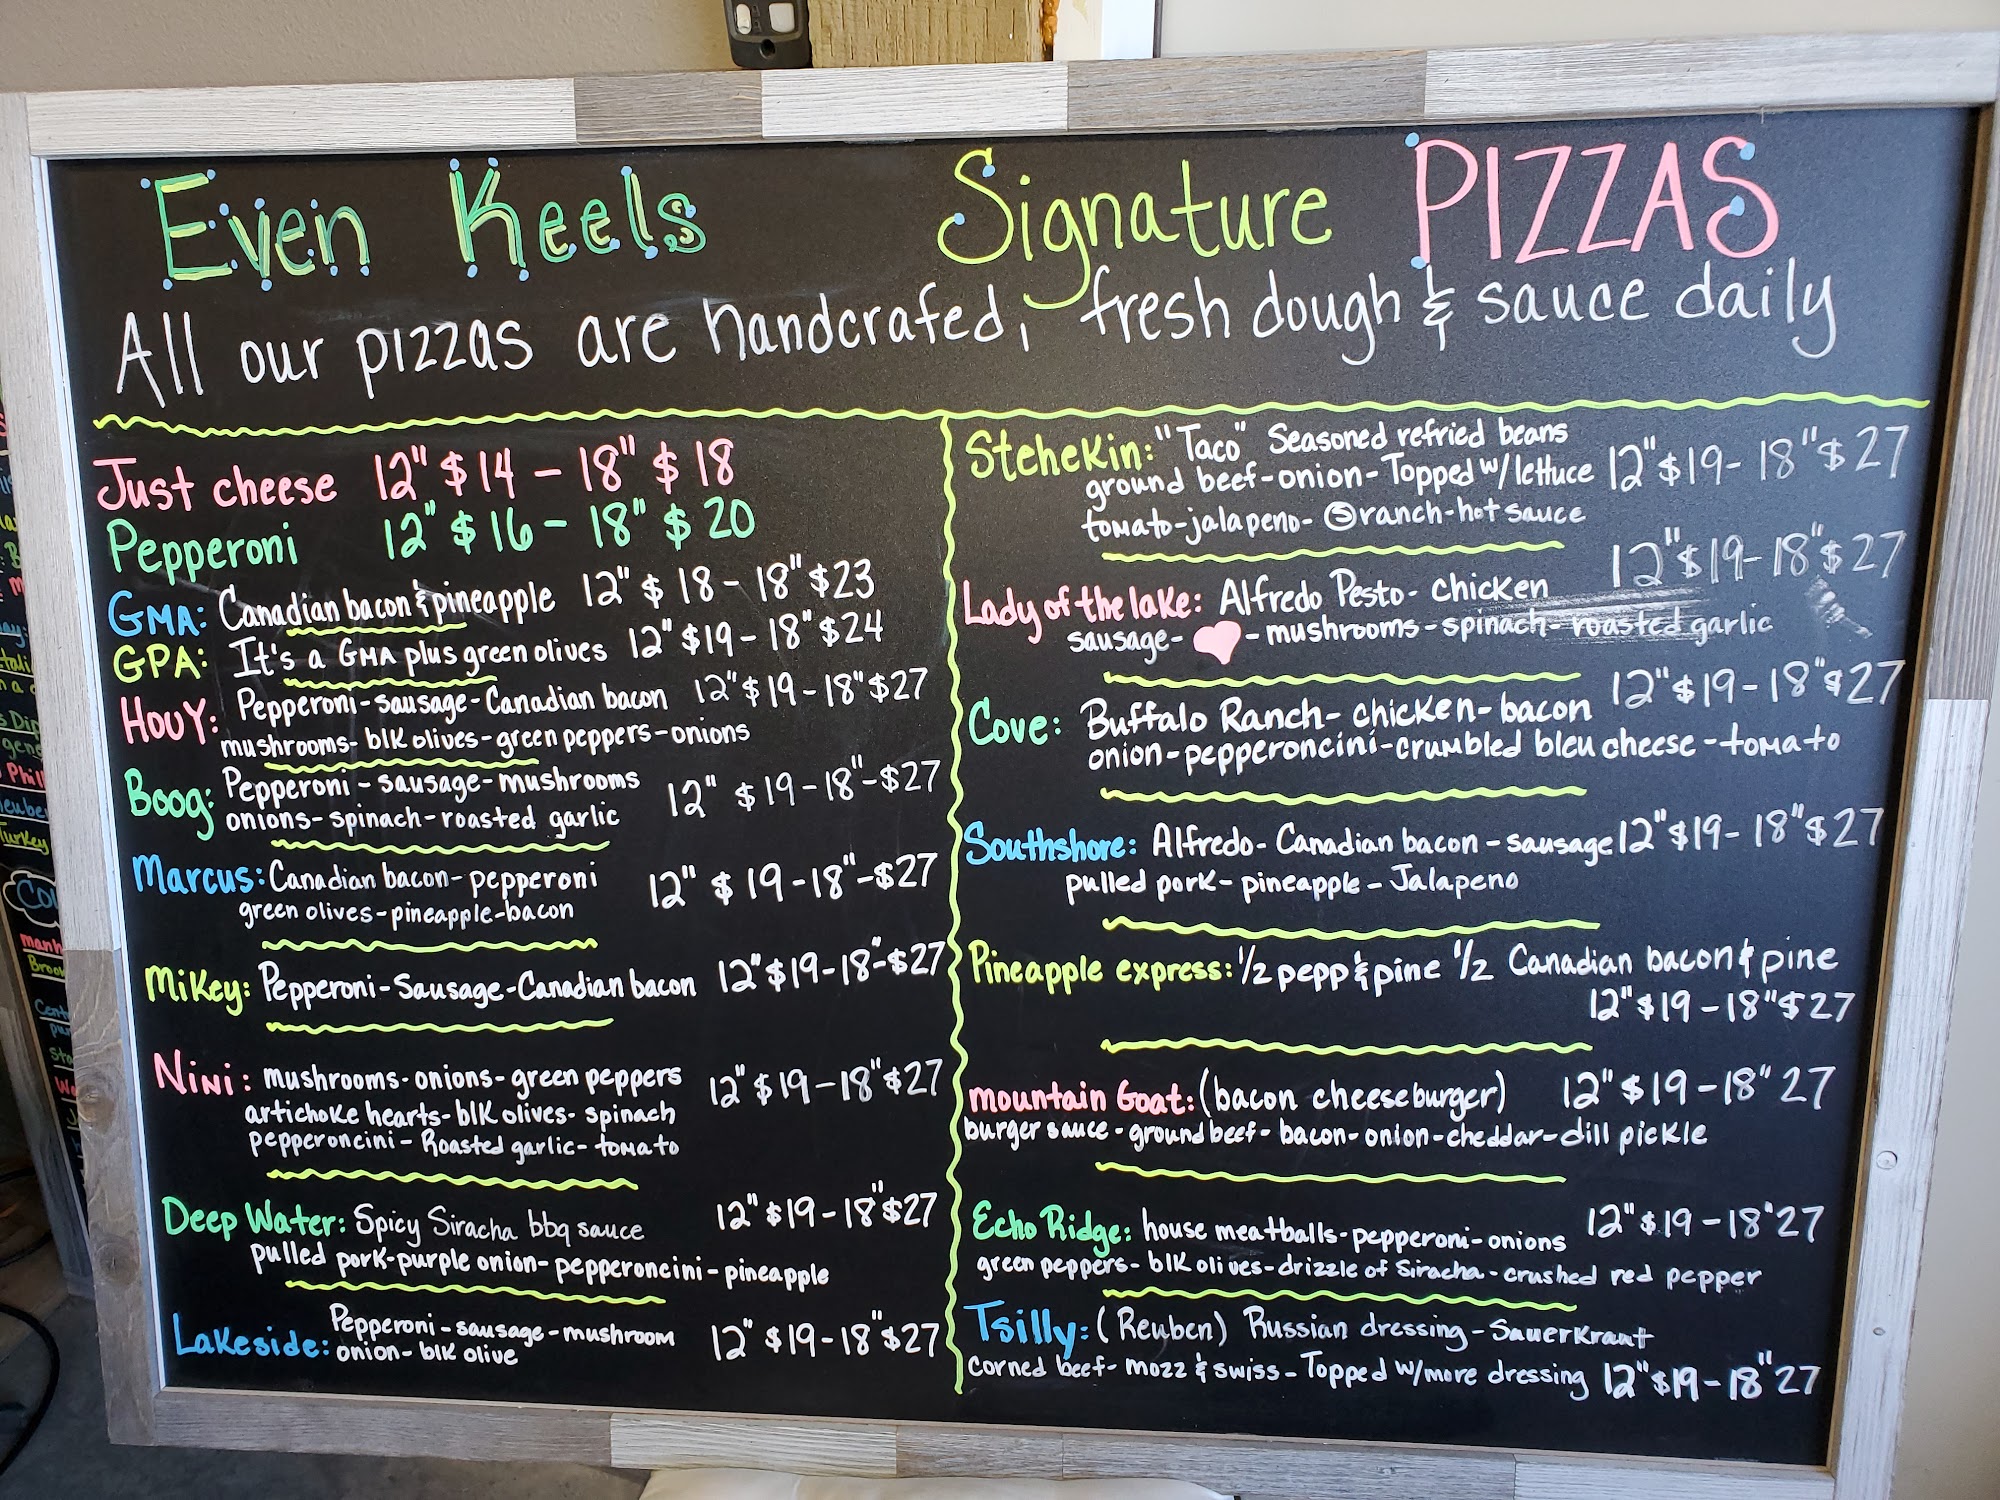 Even Keels Signature PIZZAS
All our pizzas are handcrafted, fresh dough & sauce daily
Just cheese 12" $14 - 18" $18
Pepperoni 12" $16 - 18" $20
GMA: Canadian bacon & pineapple 12" $18 - 18" $23
GPA: It's a GMA plus green olives 12" $19 - 18" $24
HOUY: Pepperoni - sausage - Canadian bacon 12" $19 - 18" $27
mushrooms - blk olives - green peppers - onions
Boog: Pepperoni - sausage - mushrooms 12" $19 - 18" - $27
onions - spinach - roasted garlic
Marcus: Canadian bacon - pepperoni 12" $19 - 18" - $27
green olives - pineapple - bacon
Mikey: Pepperoni - Sausage - Canadian bacon 12" $19 - 18" - $27
Nini: mushrooms - onions - green peppers 12" $19 - 18" $27
artichoke hearts - blk olives - spinach
pepperoncini - Roasted garlic - tomato
Deep Water: Spicy Siracha bbq sauce 12" $19 - 18" $27
pulled pork - purple onion - pepperoncini - pineapple
Lakeside: Pepperoni - sausage - mushroom 12" $19 - 18" $27
onion - blk olive
Stehekin: "Taco" Seasoned refried beans
ground beef - onion - Topped w/ lettuce 12" $19 - 18" $27
tomato - jalapeno - ranch - hot sauce
Lady of the lake: Alfredo Pesto - chicken 12" $19 - 18" $27
sausage - - mushrooms - spinach - roasted garlic
Cove: Buffalo Ranch - chicken - bacon 12" $19 - 18" $27
onion - pepperoncini - crumbled bleu cheese - tomato
Southshore: Alfredo - Canadian bacon - sausage 12" $19 - 18" $27
pulled pork - pineapple - Jalapeno
Pineapple express: 1/2 pepp & pine 1/2 Canadian bacon & pine
12" $19 - 18" $27
mountain Goat: (bacon cheeseburger) 12" $19 - 18" 27
burger sauce - ground beef - bacon - onion - cheddar - dill pickle
Echo Ridge: house meatballs - pepperoni - onions 12" $19 - 18" 27
green peppers - blk olives - drizzle of Siracha - crushed red pepper
Tsilly: (Reuben) Russian dressing - Sauerkraut
corned beef - mozz & swiss - Topped w/ more dressing 12" $19 - 18" 27